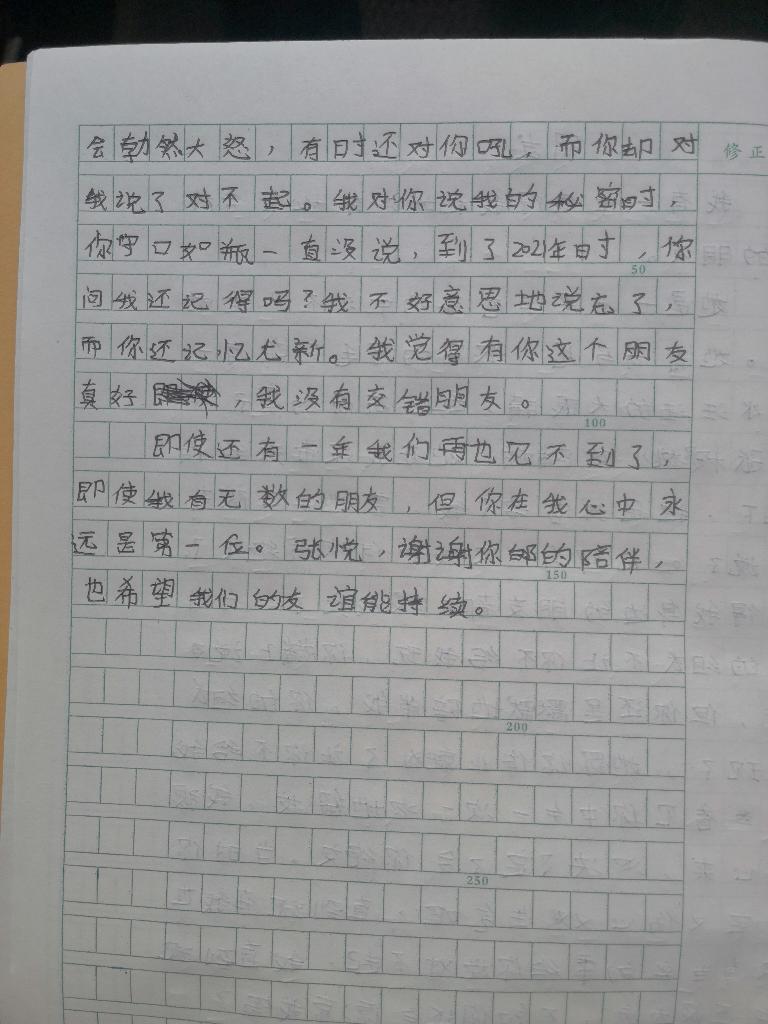 会勃然大怒，有时还对你吼，而你却对
修正
我说了对不起。我对你说我的秘密时，
你守口如瓶一直没说，到了2021年时，你
50
问我还记得吗？我不好意思地说忘了，
而你还记忆尤新。我觉得有你这个朋友
真好，我没有交错朋友。
100
即使还有一年我们再也见不到了，
即使我有无数的朋友，但你在我心中永
远是第一位。张悦，谢谢你的陪伴，
150
也希望我们的友谊能持续。
200
250